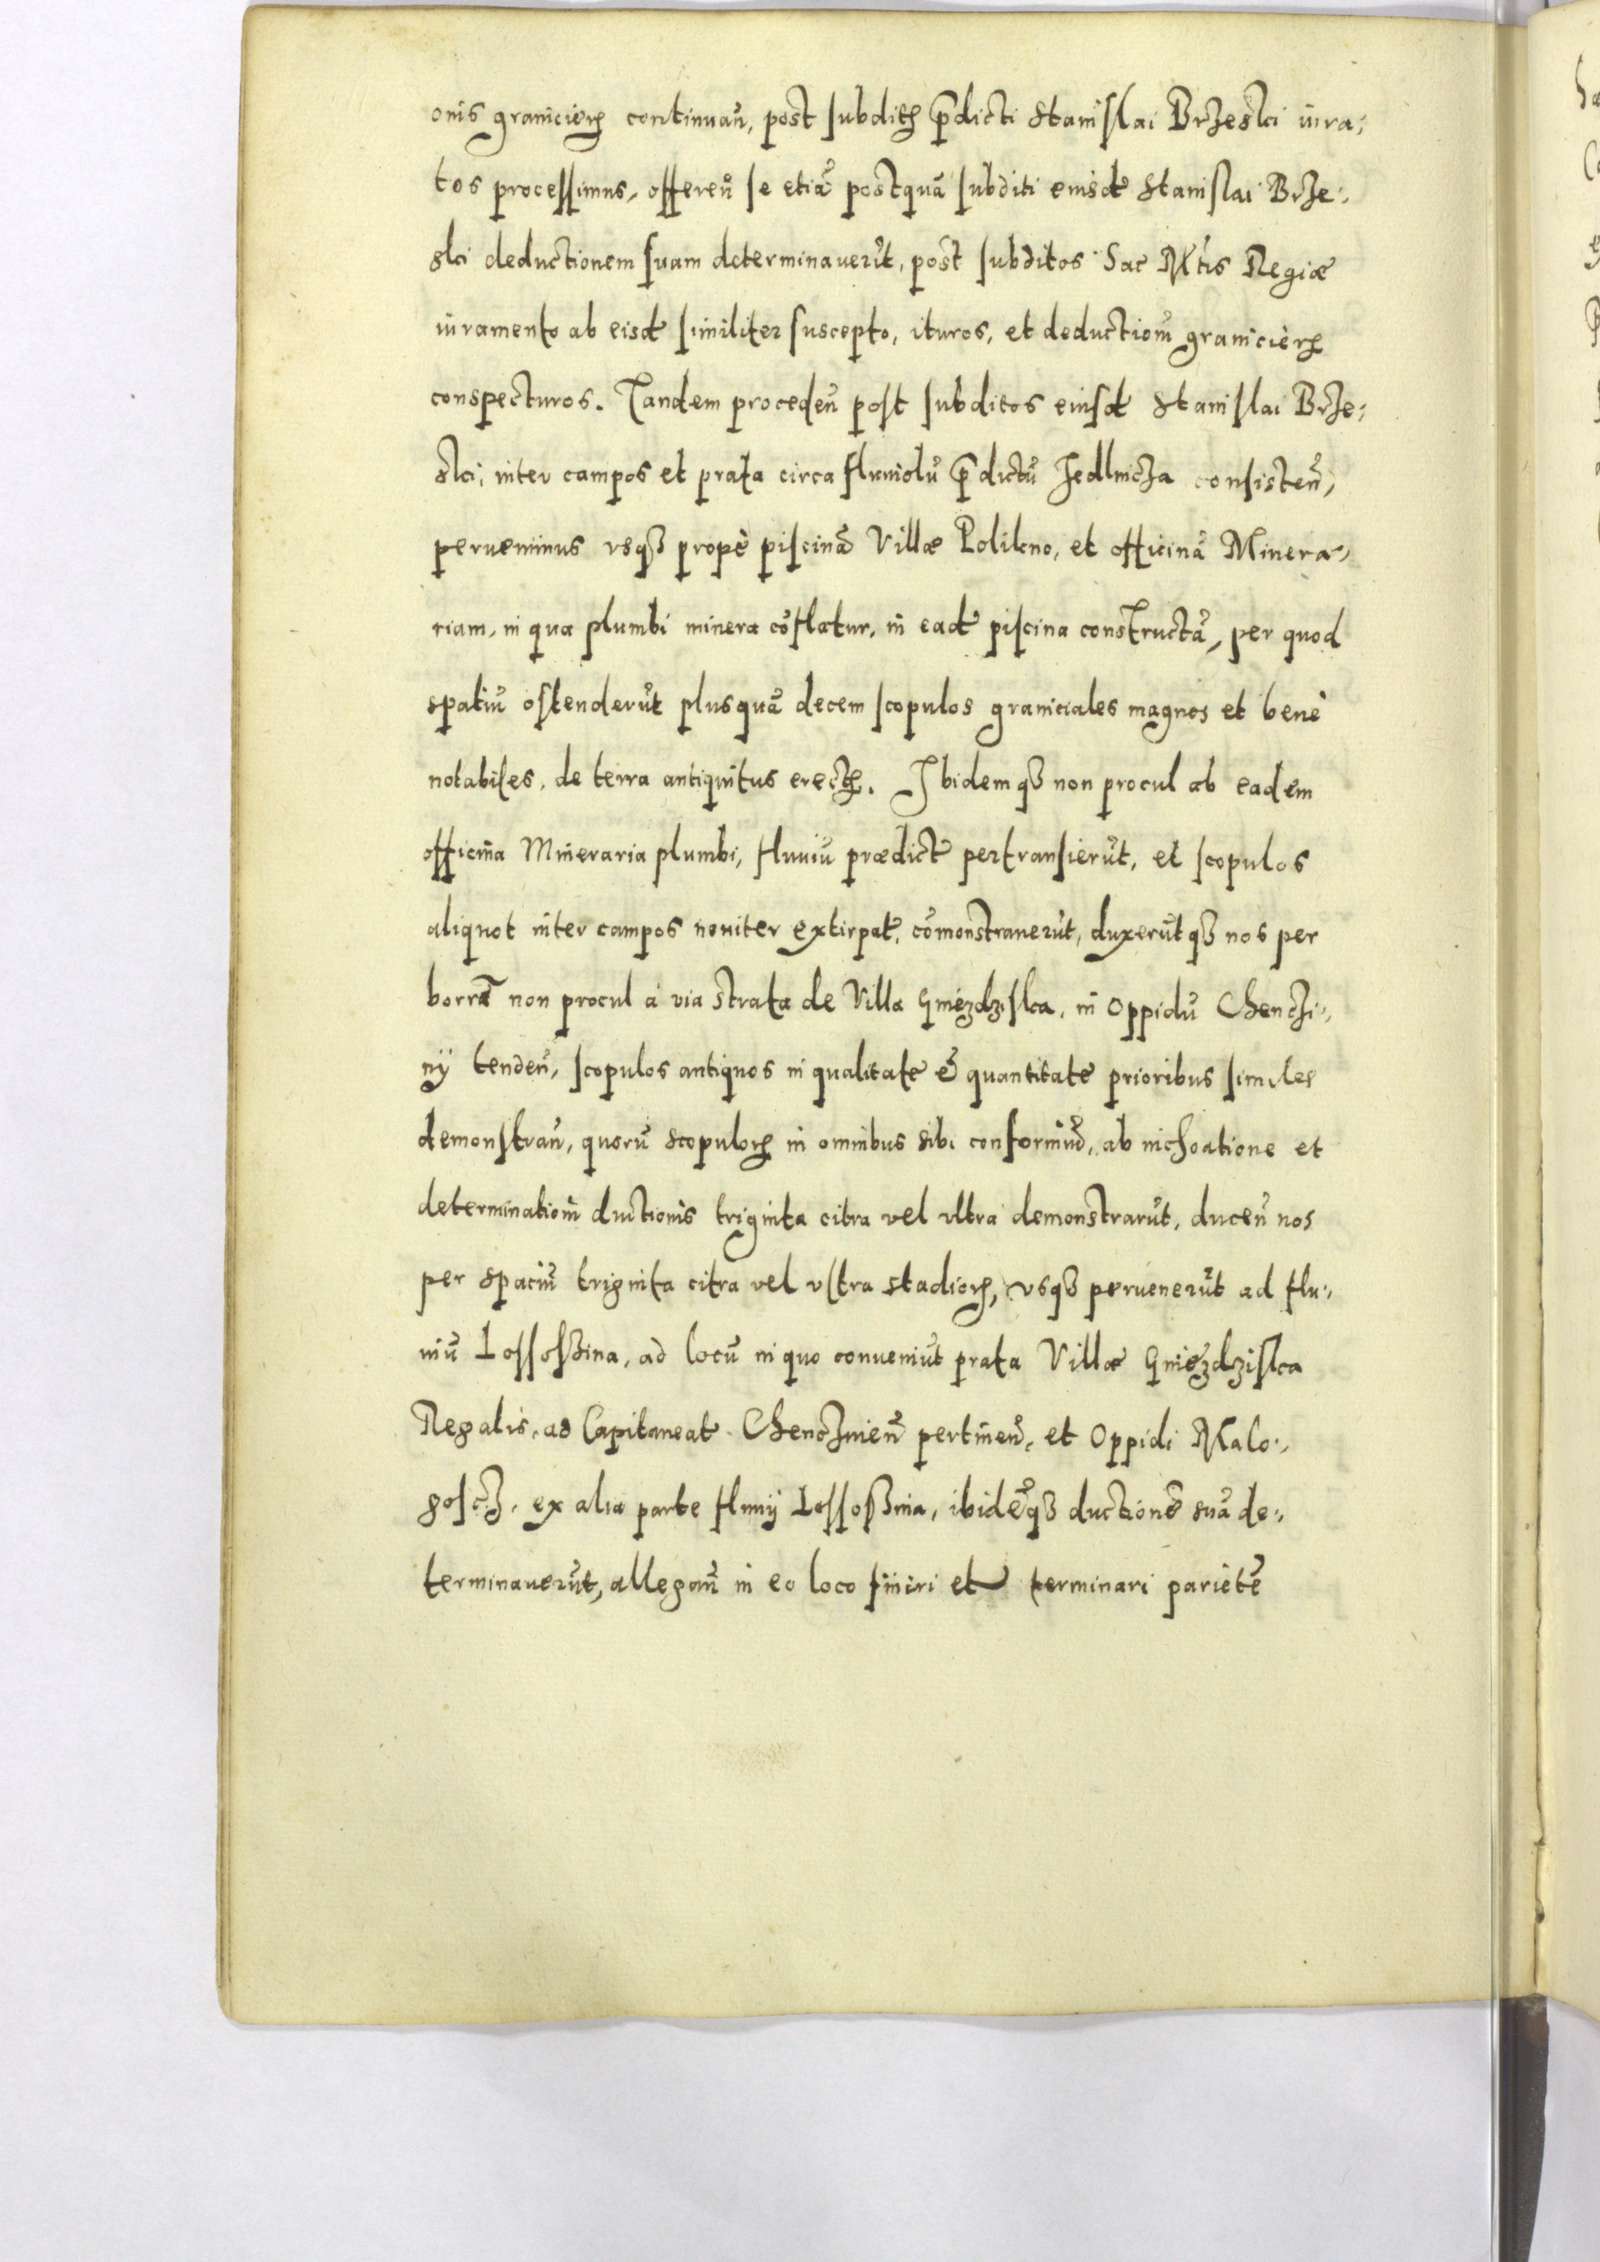 onis granicieꝝ continuan̄, post subditꝭ p̄dicti Stanislai Brzeski iura:
tos processimus, offeren̄ se etiā postquā subditi eiusdē Stanislai Brze:
ski deductionem suam determinauerūt, post subditos Sac Mtīs Regiæ
iuramento ab eisdē similiter suscepto, ituros, et deductionē granicieꝝ
conspecturos. Tandem proceden̄ post subditos eiusdē Stanislai Brze:
ski, inter campos et prata circa fluuiolū p̄dictū Jedlnicza consisten̄,
peruenimus usqꝫ propè piscinā Villæ Polikno, et officinā Minera:
riam, in qua plumbi minera cōflatur, in eadē piscina constructā, per quod
spatiū ostenderūt plusquā decem scopulos graniciales magnos et benè
notabiles, de terra antiquitus erectꝭ. Ibidemqꝫ non procul ab eadem
officina Mineraria plumbi, fluuiū prædictē pertransierūt, et scopulos
aliquot inter campos nouiter extirpatꝭ, cōmonstrauerūt, duxerūtqꝫ nos per
borrā non procul á via strata de Villa Gniezdziska, in Oppidū Chenczi:
ny tenden̄, scopulos antiquos in qualitate & quantitate prioribus similes
demonstran̄, quorū scopuloꝝ in omnibus sibi conformiū, ab inchoatione et
determinationē ductionis triginta citra vel ultra demonstrarūt, ducen̄ nos
per spaciū triginta citra vel ultra stadioꝝ, usqꝫ peruenerūt ad flu:
uiū Lossoßina, ad locū in quo conueniūt prata Villæ Gniezdziska
Regalis, ad Capitaneatꝭ Chenczinien̄ pertinen̄, et Oppidi Malo:
goscz, ex alia parte fluuij Lossoßina, ibidēqꝫ ductionē suā de:
terminauerūt, allegan̄ in eo loco finiri et terminari parietē